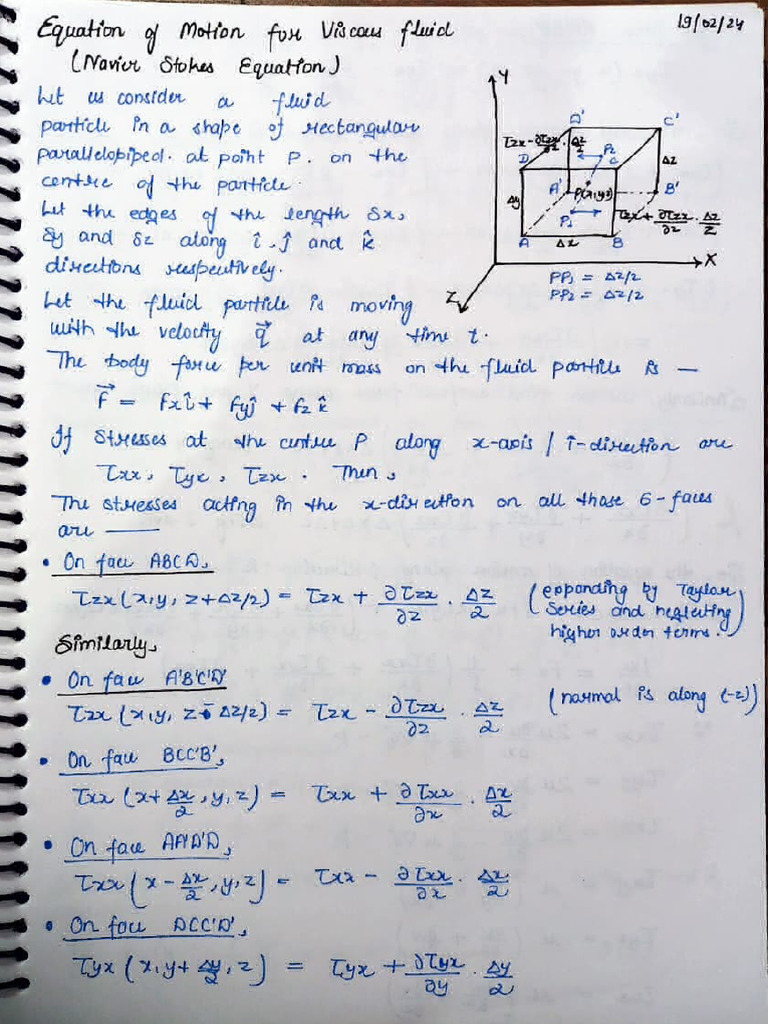 19/02/24
Equation of Motion for Viscous fluid
(Navier Stokes Equation)
Let us consider a fluid
particle in a shape of rectangular
parallelopiped. at point P. on the
centre of the particle.
Let the edges of the length δx,
δy and δz along î, ĵ and k̂
directions respectively.
Let the fluid particle is moving
with the velocity q⃗ at any time t.
The body force per unit mass on the fluid particle is —
F⃗ = fx î + fy ĵ + fz k̂
If stresses at the centre P along x-axis / î-direction are
τxx, τyx, τzx. Then,
The stresses acting in the x-direction on all those 6-faces
are ——
• On face ABCD,
τzx (x, y, z+Δz/2) = τzx + ∂τzx/∂z · Δz/2 (expanding by Taylor
series and neglecting
higher order terms.)
Similarly,
• On face A'B'C'D'
τzx (x, y, z - Δz/2) = τzx - ∂τzx/∂z · Δz/2 (normal is along (-z))
• On face BCC'B',
τxx (x + Δx/2, y, z) = τxx + ∂τxx/∂x · Δx/2
• On face AA'D'D,
τxx (x - Δx/2, y, z) = τxx - ∂τxx/∂x · Δx/2
• On face DCC'D',
τyx (x, y + Δy/2, z) = τyx + ∂τyx/∂y · Δy/2
Y
D' C'
τzx - ∂τzx/∂z · Δz/2
D C P2 Δz
A' P(x,y,z) B'
Δy
P1 τzx + ∂τzx/∂z · Δz/2
A Δx B
X
Z
PP1 = Δz/2
PP2 = Δz/2